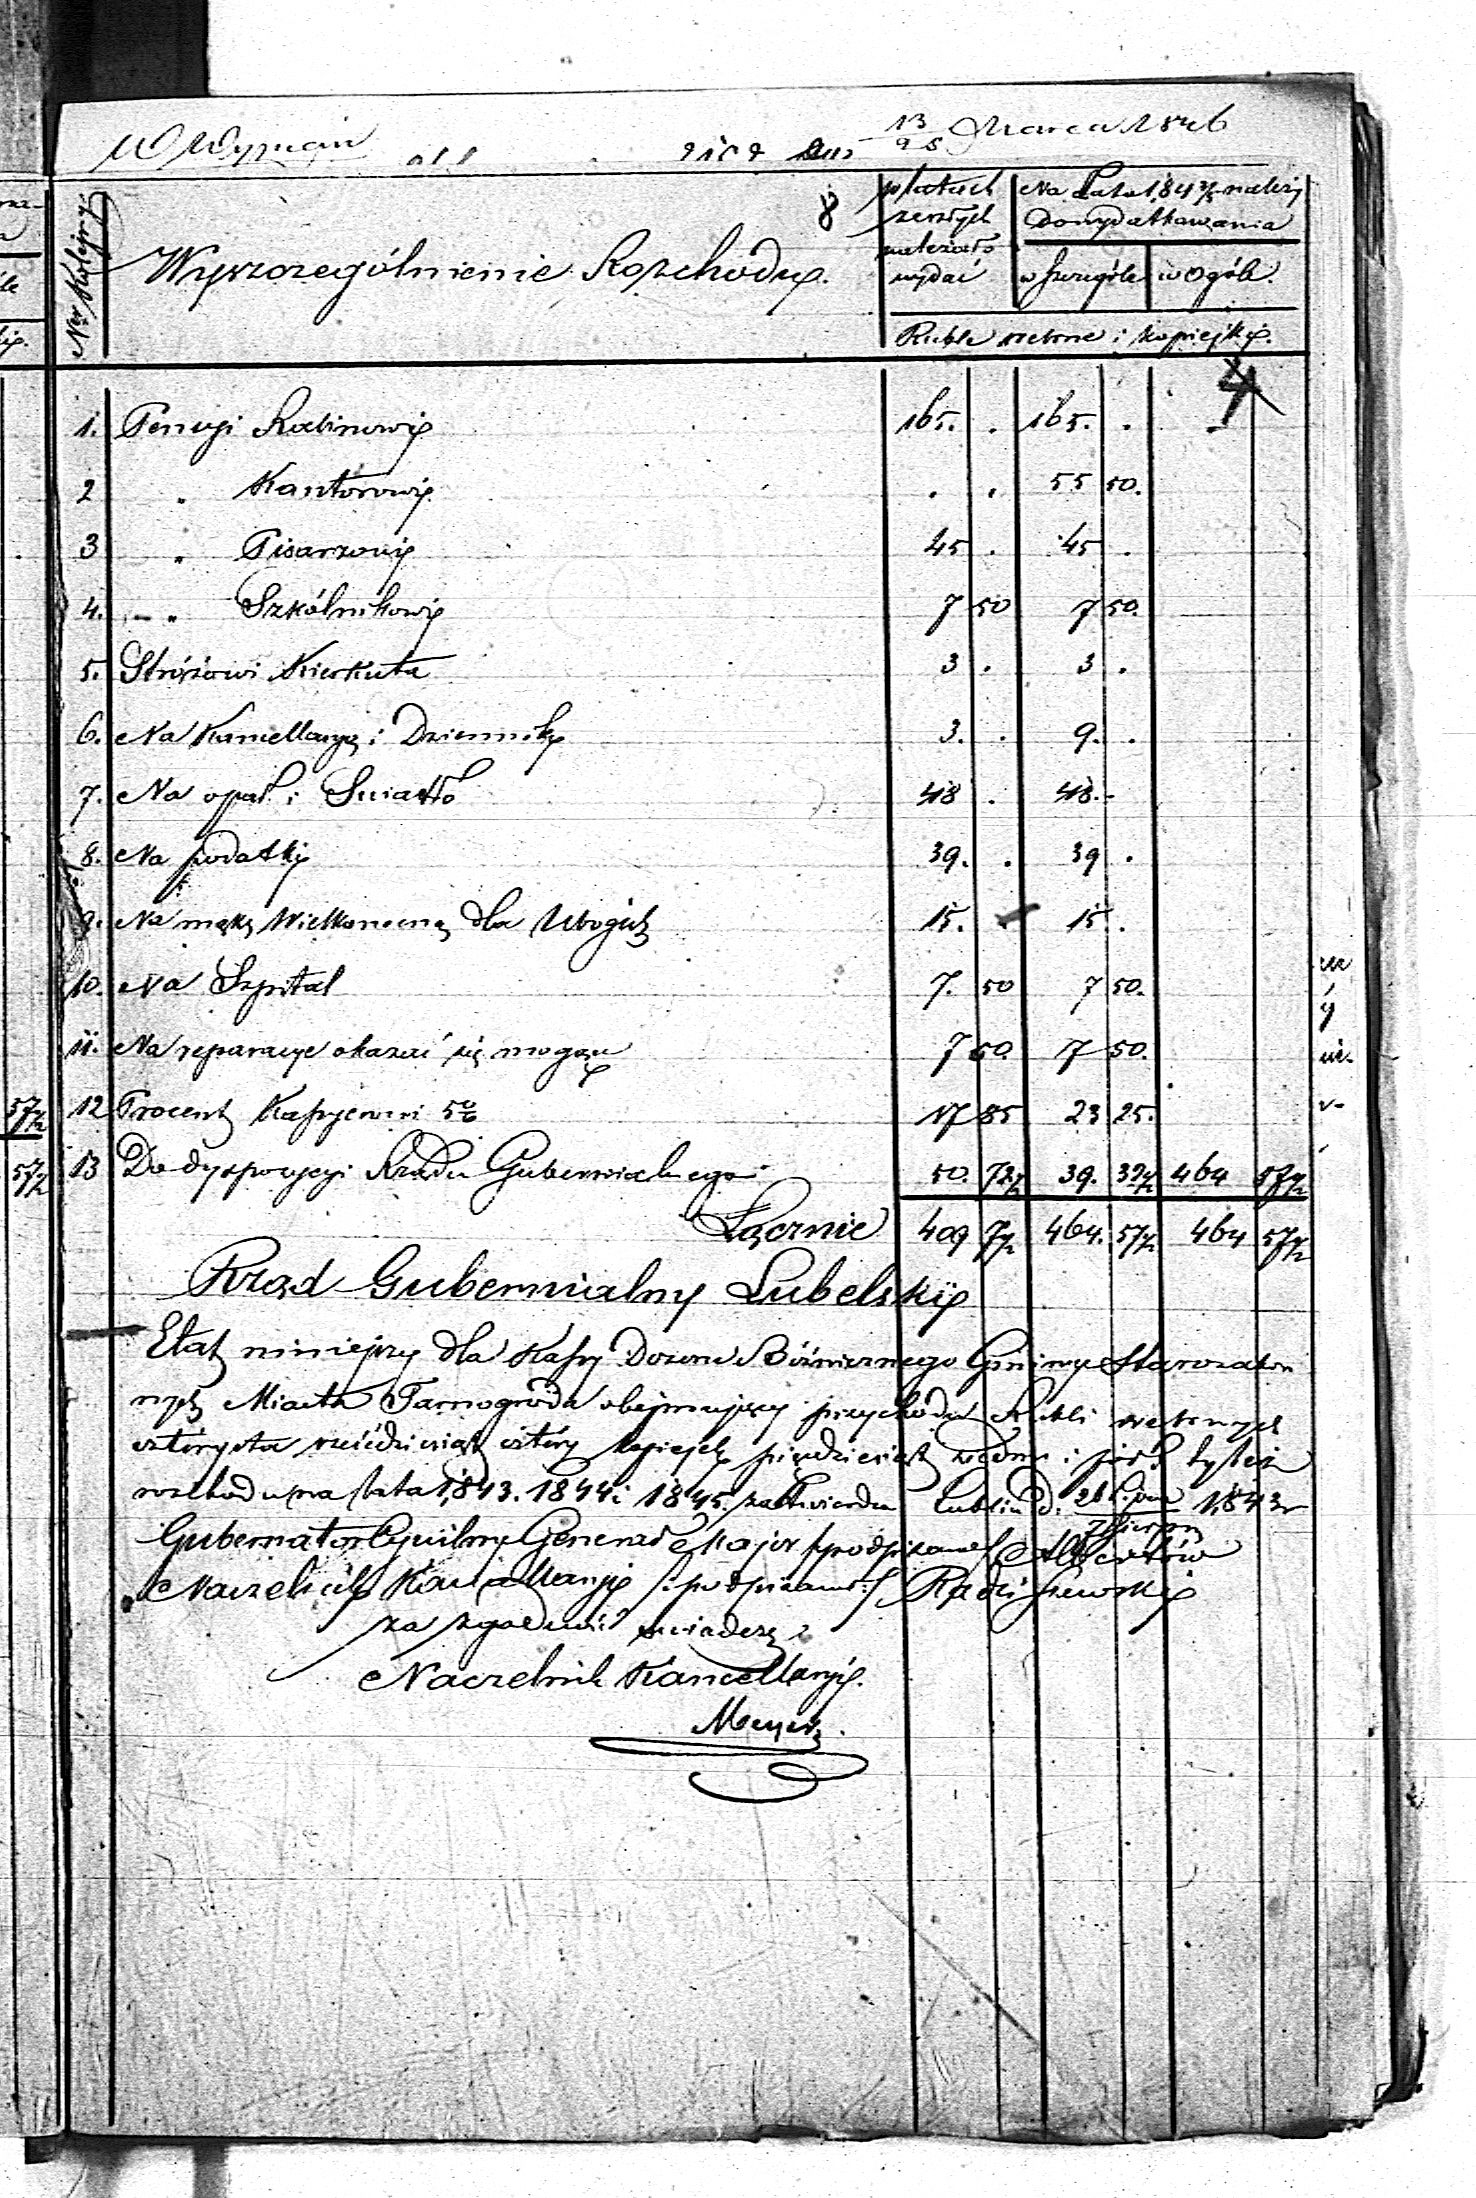 13/25 Marca 1846
8
Nr Kolejny
Wyszczególnienie Rozchodu.
w latach zeszłych należało wydać
Na Lata 1843/5 należy
Do wydatkowania
w szczególe w Ogóle.
Ruble srebrne i kopiejki.
4
1. Pensyi Rabinowi 165. . 165. .
2 " Kantorowi . . 55 50.
3 " Pisarzowi 45 . 45 .
4. " Szkólnikowi 7 50 7 50.
5. Stróżowi Kierkuta 3 . 3 .
6. Na Kancellaryą i Dziennik 3. . 9. .
7. Na opał i Swiatło 48 . 48. -
8. Na podatki 39. . 39 .
9. Na mąkę Wielkanocną dla Ubogich 15. 15 .
10. Na Szpital 7. 50 7 50.
11. Na reparacye okazać się mogące 7 50. 7 50.
57½ 12 Procent Kassyerowi 5% 17 85 23 25.
57½ 13 Do dyspozycyi Rządu Gubernialnego 50. 72½ 39. 32½ 464 57½
Łącznie 409 7½ 464. 57½ 464 57½
Rząd Gubernialny Lubelski
Etat niniejszy dla Kassy Dozoru Bóżnicznego Gminy Starozakon
nych Miasta Tarnogroda obejmujący przychodu Rubli srebrnych
czterysta sześćdziesiąt cztéry kopiejek pięćdziesiąt siedm i pół tyleż
rozchodu na lata 1843. 1844 i 1845. zatwierdza Lublin d. 26 Lipca / 7 Sierpn 1843 r
Gubernator Cywilny Generał Major /podpisano/ Albertów
Naczelnik Kancellaryi /:podpisano:/ Radziszewski
za zgodność świadczę
Naczelnik Kancellaryi.
Meyer.